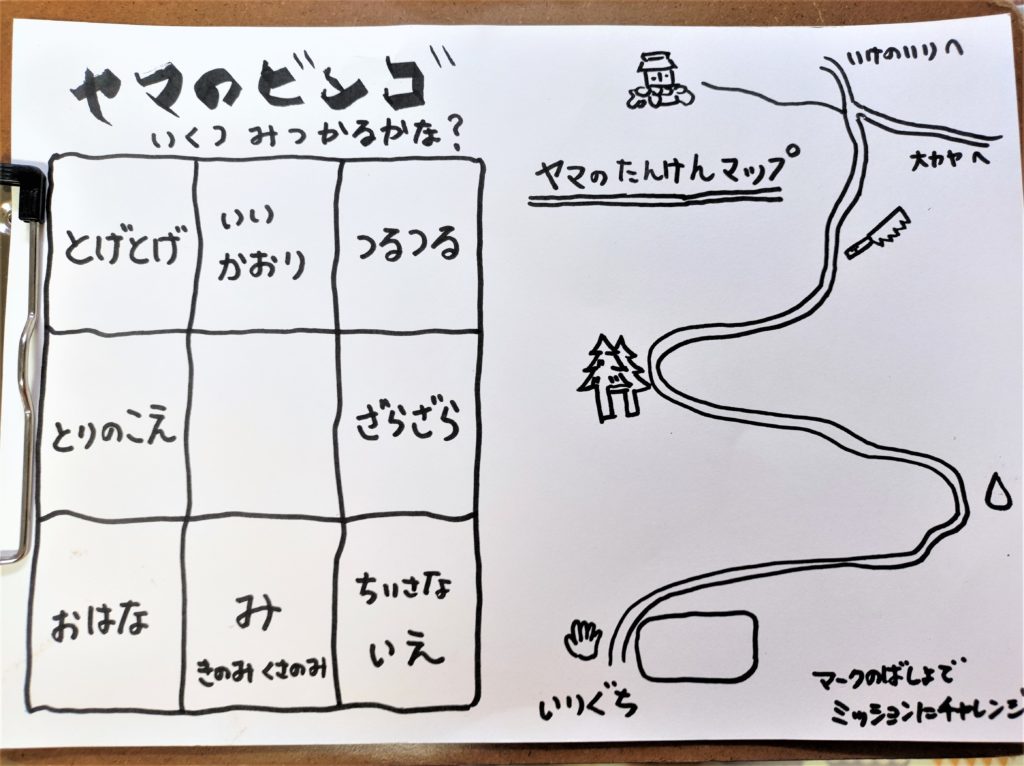 ヤマのビンゴ
いくつ みつかるかな?
とげとげ
いい
かおり
つるつる
とりのこえ
ざらざら
おはな
み
きのみ くさのみ
ちいさな
いえ
いけのいりへ
大カヤへ
ヤマのたんけんマップ
いりぐち
マークのばしょで
ミッションにチャレンジ